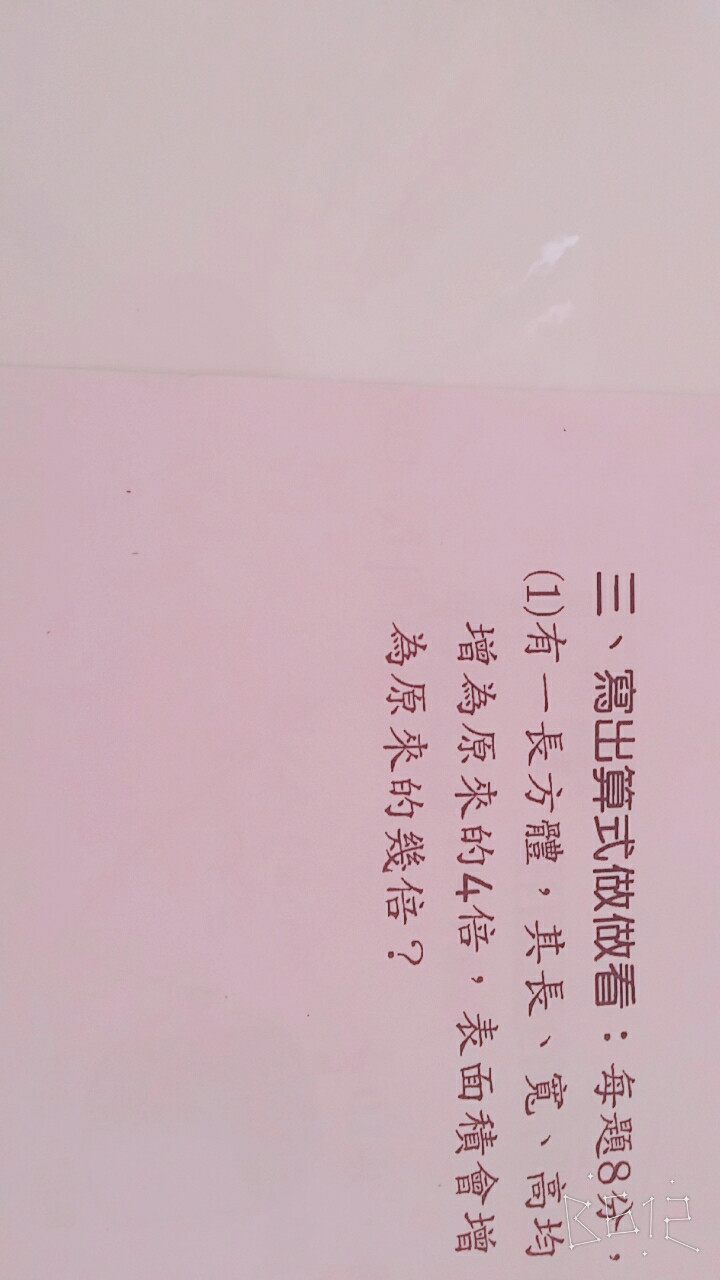 三、寫出算式做做看：每題8分，
(1)有一長方體，其長、寬、高均
增為原來的4倍，表面積會增
為原來的幾倍？
B612